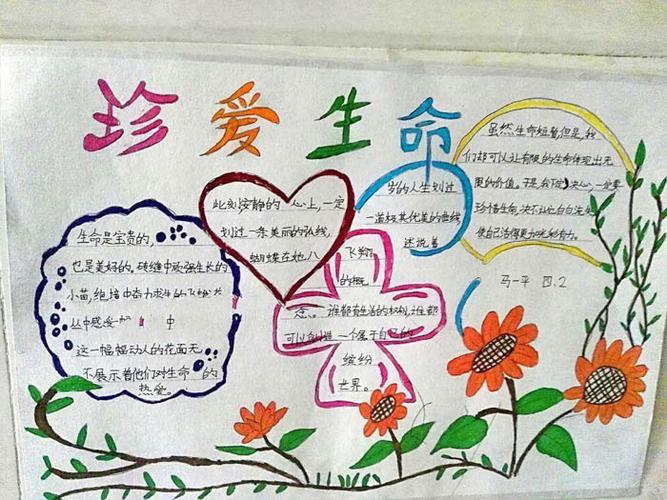 珍爱生命
生命是宝贵的,
也是美好的。砖缝中顽强生长的
小苗,绝境中奋力求生的飞蛾
丛中感受 中
这一幅幅动人的花面无
不展示着他们对生命的
热爱。
此刻安静的 心上,一定
划过一条美丽的弧线,
蝴蝶在她八
岁的人生划过
一道极其优美的曲线,
述说着
飞翔
的概
念。谁都有生活的权利,谁都
可以创造一个属于自己的
缤纷
世界。
虽然生命短暂但是,我
们却可以让有限的生命体现出无
限的价值。于是,我下定决心,一定要
珍惜生命,决不让他白白流失
使自己活得更加光彩有力。
马一平 四.2